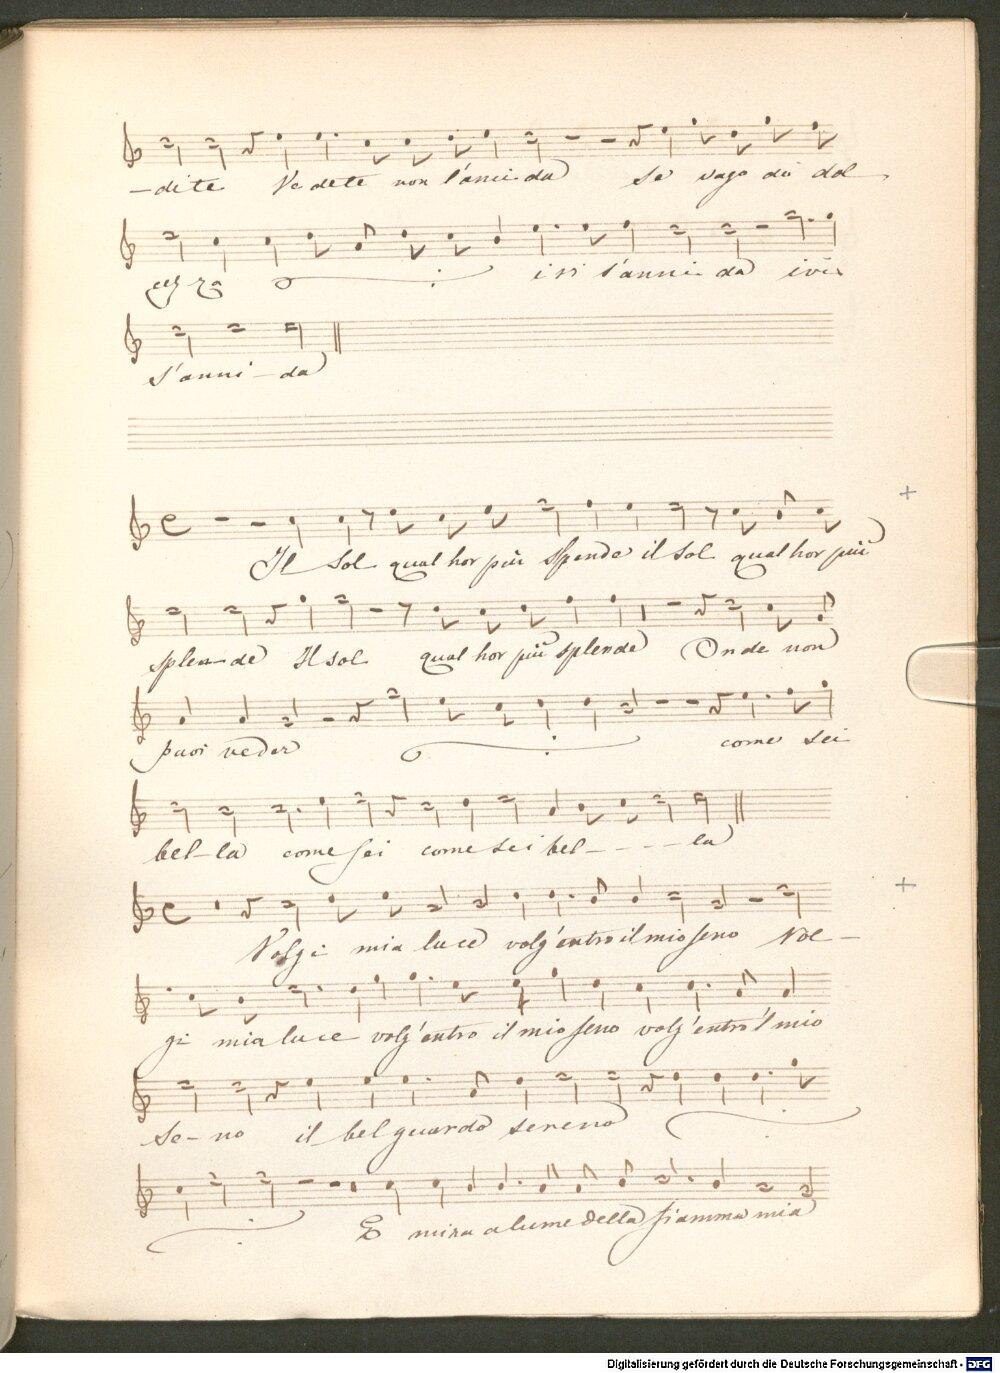 -dite Vedete non l'anci-da se vago di dol
cezza ivi s'anni-da ivi
s'anni-da
Il sol qual hor più splende il sol qual hor più
splen-de Il sol qual hor più splende Onde non
puoi veder come sei
bel-la come sei come sei bel----la
Volgi mia luce volg'entro il mio seno Vol-
gi mia luce volg'entro il mio seno volg'entro'l mio
se-no il bel guardo sereno
E mira a lume della fiamma mia
Digitalisierung gefördert durch die Deutsche Forschungsgemeinschaft - DFG